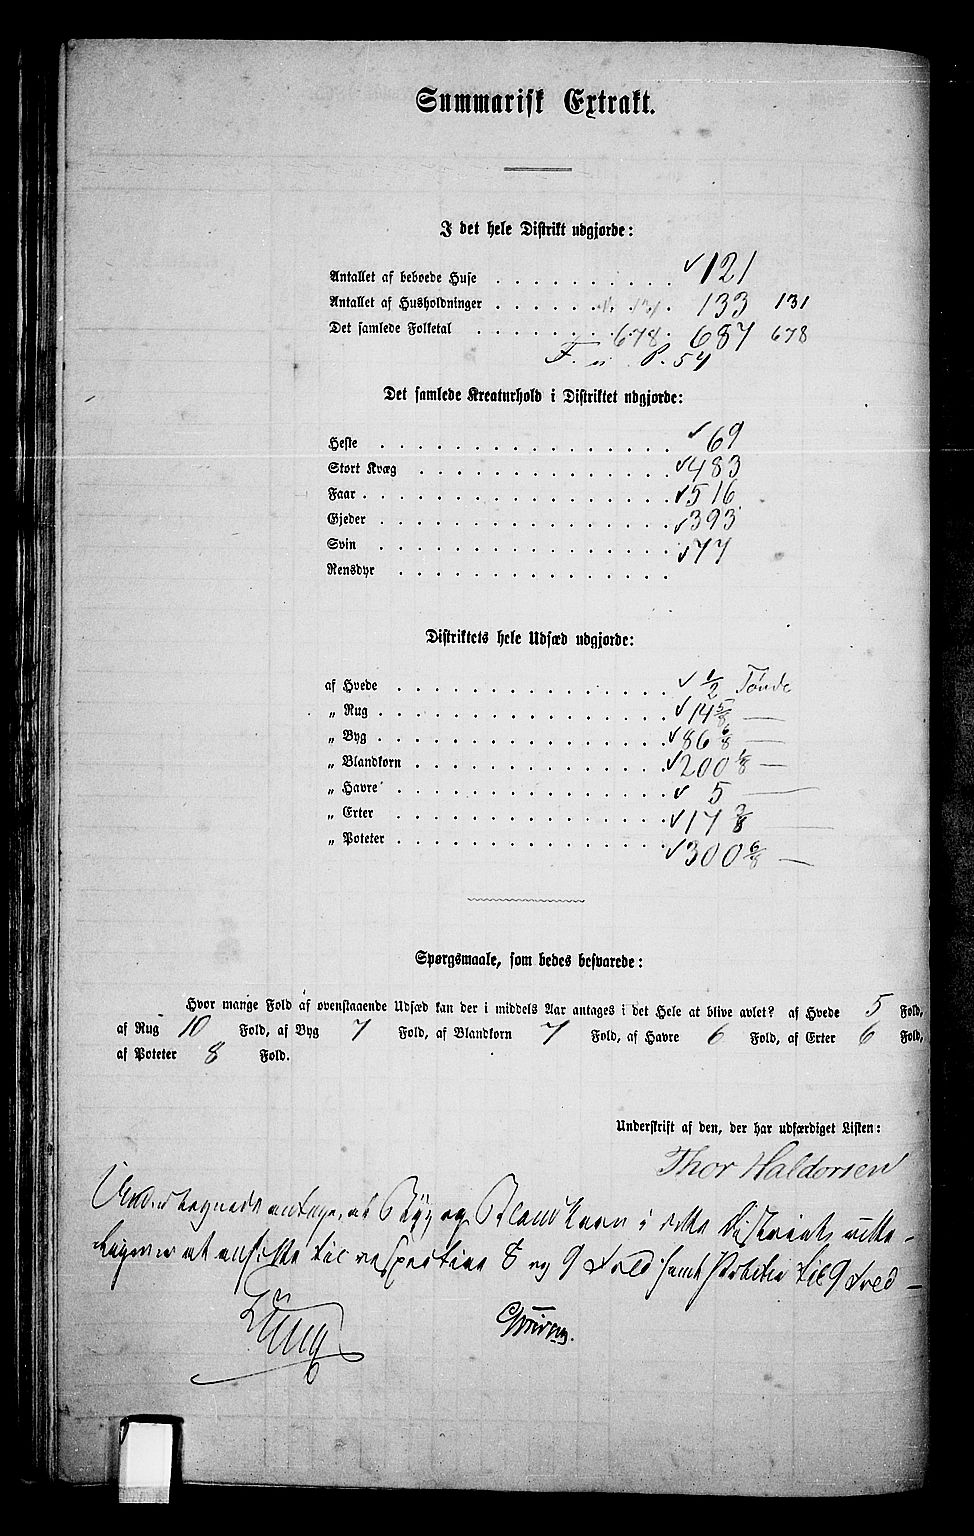 Summarisk Extrakt.
I det hele Distrikt udgjorde:
Antallet af beboede Huse . . . . . . . . . . ✓ 121
Antallet af Husholdninger . . . . . . . . 131 . 133 131
Det samlede Folketal . . . . . . . . 678 . 687 678
F. n. P. 57
Det samlede Kreaturhold i Distriktet udgjorde:
Heste . . . . . . . . . . . . . . . . ✓ 69
Stort Kvæg . . . . . . . . . . . . . . ✓ 483
Faar . . . . . . . . . . . . . . . . . ✓ 516
Gjeder . . . . . . . . . . . . . . . . ✓ 393
Svin . . . . . . . . . . . . . . . . ✓ 77
Rensdyr . . . . . . . . . . . . . . .
Distriktets hele Udsæd udgjorde:
af Hvede . . . . . . . . . . . . . . . ✓ 1/2 Tønde
„ Rug . . . . . . . . . . . . . . . . ✓ 14 5/8 —
„ Byg . . . . . . . . . . . . . . . . ✓ 86 6/8 —
„ Blandkorn . . . . . . . . . . . . . ✓ 200 1/8 —
„ Havre . . . . . . . . . . . . . . . ✓ 5 —
„ Erter . . . . . . . . . . . . . . . ✓ 17 —
„ Poteter . . . . . . . . . . . . . . ✓ 300 6/8 —
Spørgsmaale, som bedes besvarede:
Hvor mange Fold af ovenstaaende Udsæd kan der i middels Aar antages i det Hele at blive avlet? af Hvede 5 Fold,
af Rug 10 Fold, af Byg 7 Fold, af Blandkorn 7 Fold, af Havre 6 Fold, af Erter 6 Fold,
af Poteter 8 Fold.
Underskrift af den, der har udfærdiget Listen:
Thor Haldorsen
Undertegnede antage, at Byg og Blandkorn i dette Distrikt rette-
ligen er at ansætte til respective 8 og 9 Fold samt Poteter til 9 Fold —